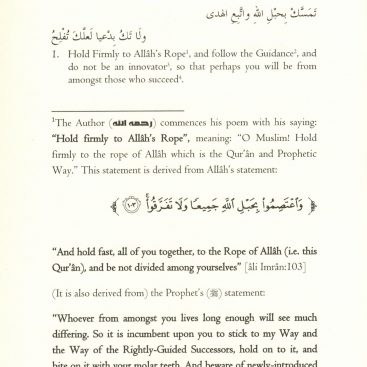 تَمَسَّكْ بِحَبْلِ اللهِ واتَّبِعِ الهدى
ولَا تَكُ بِدْعيا لَعلَّكَ تُفْلِحُ
1. Hold Firmly to Allâh's Rope¹, and follow the Guidance², and
do not be an innovator³, so that perhaps you will be from
amongst those who succeed⁴.
¹The Author (رحمه الله) commences his poem with his saying:
"Hold firmly to Allâh's Rope", meaning: "O Muslim! Hold
firmly to the rope of Allâh which is the Qur'ân and Prophetic
Way." This statement is derived from Allâh's statement:
﴿ وَاعْتَصِمُوا بِحَبْلِ اللَّهِ جَمِيعًا وَلَا تَفَرَّقُوا ۚ ١٠٣ ﴾
"And hold fast, all of you together, to the Rope of Allâh (i.e. this
Qur'ân), and be not divided among yourselves" [âli Imrân:103]
(It is also derived from) the Prophet's (ﷺ) statement:
"Whoever from amongst you lives long enough will see much
differing. So it is incumbent upon you to stick to my Way and
the Way of the Rightly-Guided Successors, hold on to it, and
bite on it with your molar teeth. And beware of newly-introduced